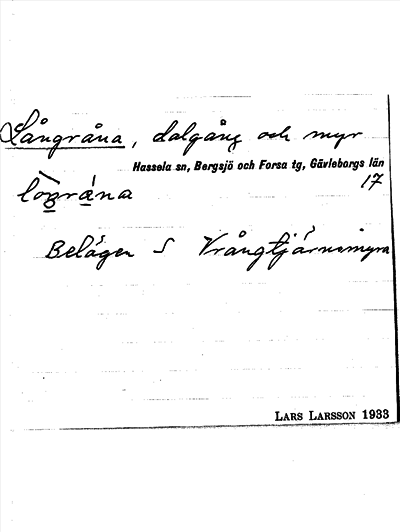 Långråna, dalgång och myr
Hassela sn, Bergsjö och Forsa tg, Gävleborgs län
17
Belägen S Vrångtjärnsmyra
LARS LARSSON 1933